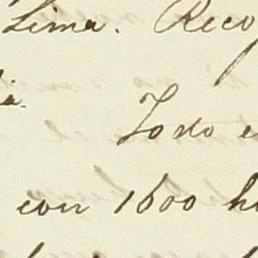 Lima. Reco
Todo e
con 1600 h